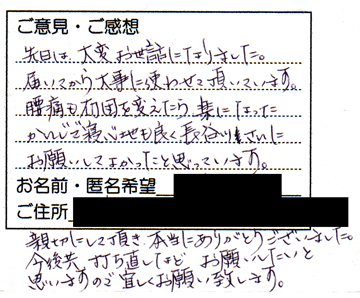 ご意見・ご感想
先日は、大変お世話になりました。
届いてから大事に使わせて頂いています。
腰痛も布団を変えたら楽になった
かんじで寝心地も良く長谷川さんに
お願いしてよかったと思っています。
お名前・匿名希望
ご住所
親切にして頂き本当にありがとうございました。
今後共、打ち直しなど お願いしたいと
思いますので宜しくお願い致します。